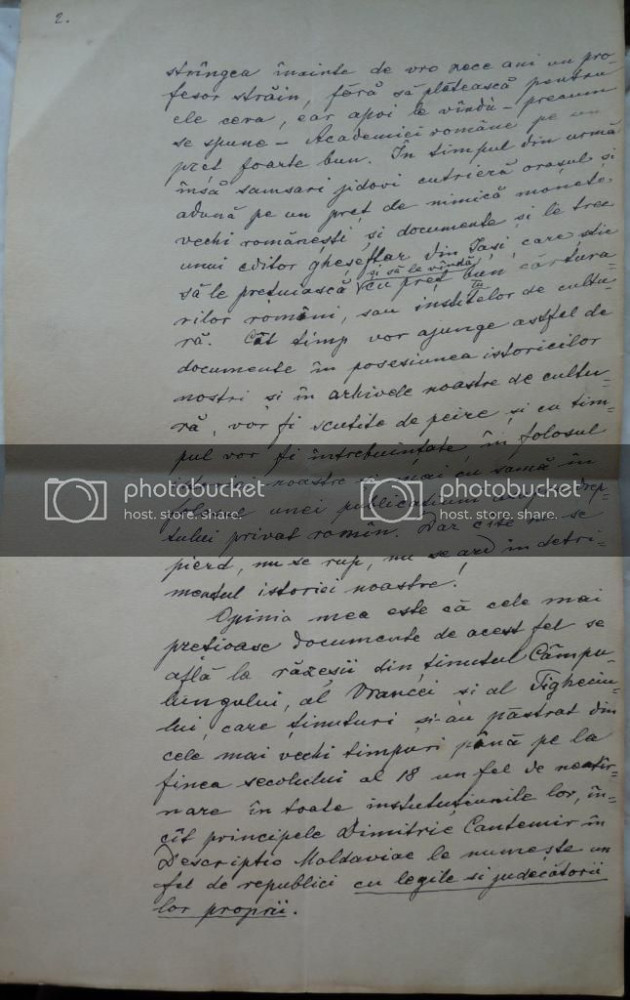 2.
strîngea înainte de vro zece ani un pro-
fesor străin, fără să plătească pentru
ele ceva, ear apoi le vîndŭ – precum
se spune – Academiei române pe un
preț foarte bun. În timpul din urmă
însă samsari jidovi cutrieră orașul și
adună pe un preț de nimică monete
vechi românești și documente și le trec
unui editor gheșeftar din Iași, care știe
să le prețuiască și să le vîndă cu preț bun cărtura-
rilor români, sau institutelor de cultu-
ră. Cât timp vor ajunge astfel de
documente în posesiunea istoricilor
nostri și în arhivele noastre de cultu-
ră, vor fi scutite de peire și cu tim-
pul vor fi întrebuințate în folosul
istoriei noastre și mai cu samă în
folosul unei publicațiuni drep-
tului privat român. Dar cîte nu se
pierd, nu se rup, nu se ard în detri-
mentul istoriei noastre!
Opinia mea este că cele mai
prețioase documente de acest fel se
află la răzeșii din ținutul Câmpu-
lungului, al Vrancei și al Tigheciu-
lui, care ținuturi și-au păstrat din
cele mai vechi timpuri până pe la
finea secolului al 18 un fel de neatîr-
nare în toate instituțiunile lor, în-
cît principele Dimitrie Cantemir în
Descriptio Moldaviae le numește un
fel de republici cu legile și judecătorii
lor proprii.
photobucket
host. store. share.
photobucket
host. store. share.